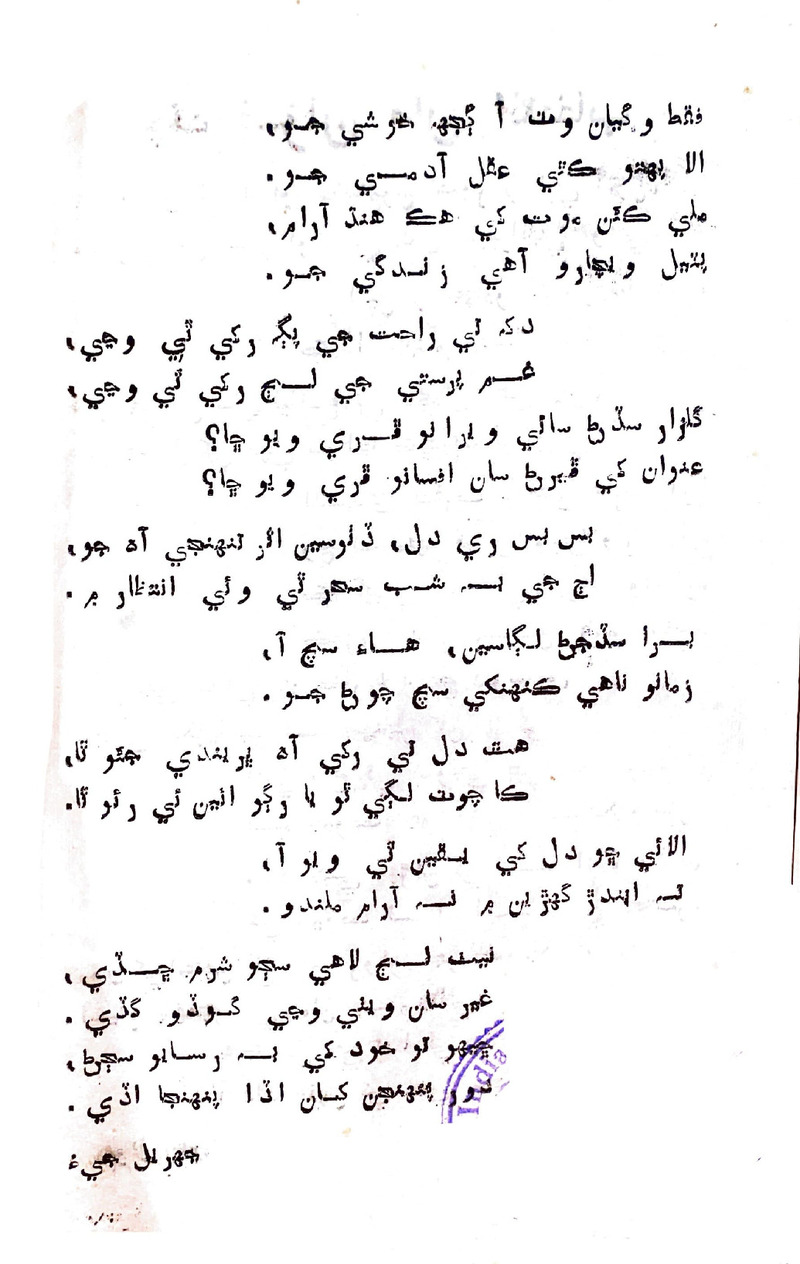 فقط وگيان وٽ آ ڳجهہ خوشي جو،
الا پهتو ڪٿي عقل آدمي جو.
ملي ڪٿن موت کي هڪ هنڌ آرام،
پٽيل ويچارو آهي زندگي جو.
دک ٿي راحت جي پڳ رکي ٿي وڃي،
غم پرستي جي لڄ رکي ٿي وڃي،
گلزار سڏڻ سائي ويرانو ڦري ويو ڇا؟
عنوان کي ڦيرڻ سان افسانو ڦري ويو ڇا؟
بس بس ري دل، ڏٺوسين اثر تنهنجي آه جو،
اڄ جي به شب سحر ٿي وئي انتظار ۾.
برا سڏجڻ لڳاسين، هاء سچ آ،
زمانو ناهي ڪنهنکي سچ چوڻ جو.
هٿ دل تي رکي آه ڀريندي جٿو ٿا،
ڪا چوٽ لڳي ٿو يا رڳو ائين ئي رئو ٿا.
الائي ڇو دل کي يقين ٿي ويو آ،
ته ايندڙ گهڙين ۾ نه آرام ملندو.
نيٺ لڄ لاهي سڄو شرم ڇڏي،
غير سان ويٺي وڃي گوڏو گڏي.
ڇيهو تو خود کي به رسايو سڄڻ،
دور پنهنجن کان اڏا پنهنجا اڏي.
جهريل جيءُ
India